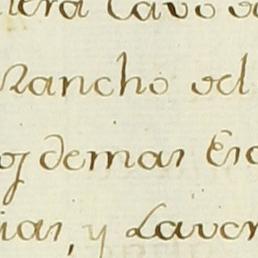 era Cavo
Rancho del
demas
ias, y Laver